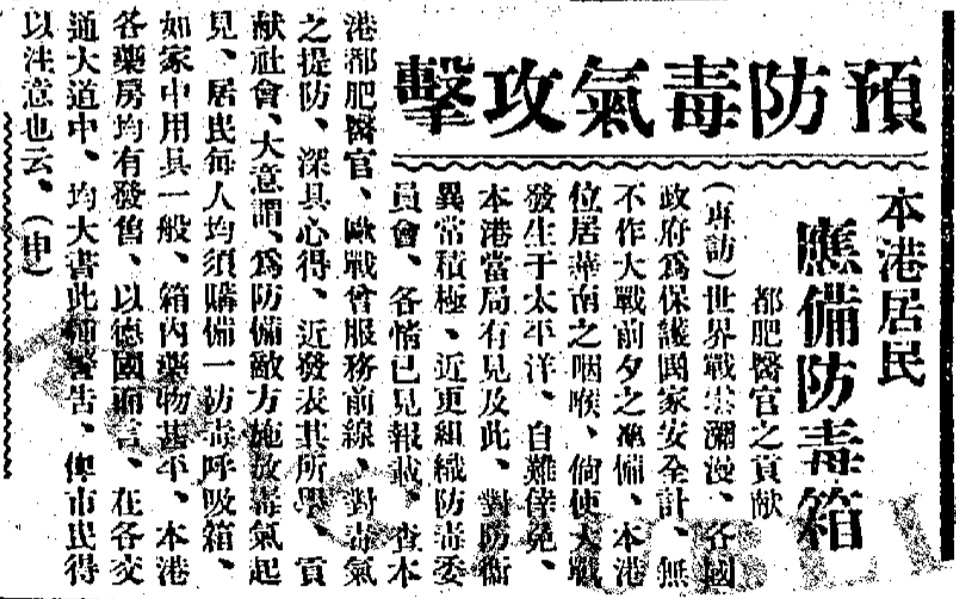 預防毒氣攻擊
本港居民
應備防毒箱
都肥醫官之貢献
(專訪)世界戰雲瀰漫、各國
政府爲保護國家安全計、無
不作大戰前夕之準備、本港
位居華南之咽喉、倘使大戰
發生于太平洋、自難倖免、
本港當局有見及此、對防衞
異常積極、近更組織防毒委
員會、各情已見報載、查本
港都肥醫官、歐戰曾服務前線、對毒氣
之提防、深具心得、近發表其所學、貢
献社會、大意謂、爲防備敵方施放毒氣起
見、居民每人均須購備一防毒呼吸箱、
如家中用具一般、箱內藥物甚平、本港
各藥房均有發售、以德國而言、在各交
通大道中、均大書此種警告、俾市民得
以注意也云、(申)